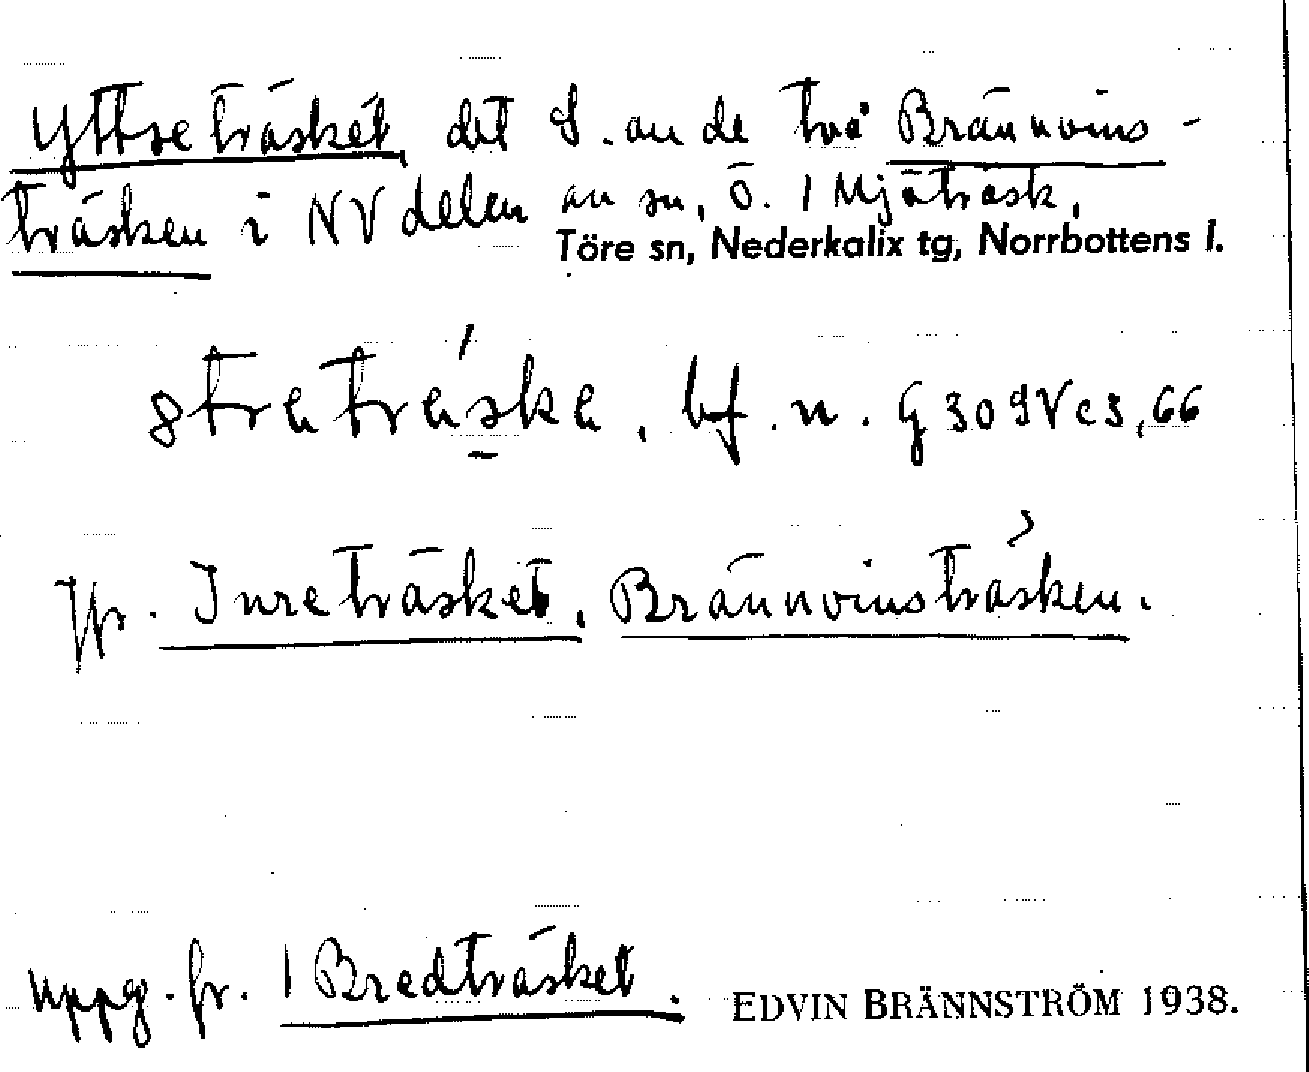 Yttreträsket, det S. av de två Brännvins-
träsken i NV delen av sn, Ö. 1 Mjöträsk,
Töre sn, Nederkalix tg, Norrbottens l.
bf. n.
jfr. Inreträsket, Brännvinsträsken.
uppg. fr. 1 Bredträsket. EDVIN BRÄNNSTRÖM 1938.